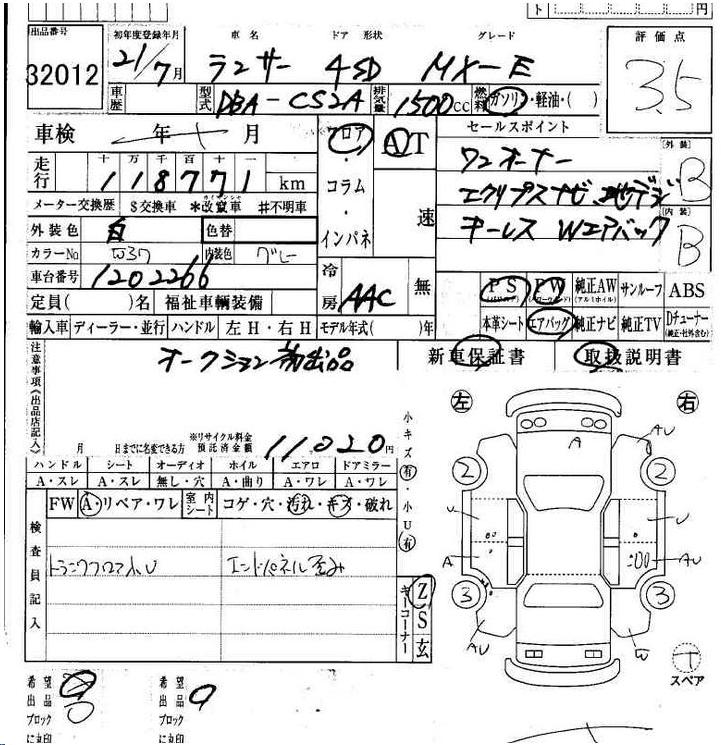 ト 円
出品番号 初年度登録年月 車名 ドア 形状 グレード 評価点
32012 21/7月 ランサー 4SD MX-E 3.5
車歴 型式 DBA-CS2A 排気量 1500cc 燃料 ガソリン・軽油・( )
車検 年 月 フロア AT セールスポイント
・
ワンオーナー 外装 B
走行 十 万 千 百 十 一
118771 km コラム エクリプスナビ 地デジ
メーター交換歴 $交換車 *改竄車 #不明車 ・ 速 キーレス Wエアバック 内装 B
外装色 白 色替 インパネ
カラーNo W37 内装色 グレー
車台番号 1202266 冷房 AAC 無 PS PW 純正AW サンルーフ ABS
(パワステ) (パワーウィンド) (アルミホイル)
定員( )名 福祉車輌装備
輸入車 ディーラー・並行 ハンドル 左H・右H モデル年式( )年 本革シート エアバッグ 純正ナビ 純正TV Dチューナー
(純正・社外含む)
注意事項(出品店記入) オークション初出品 新車保証書 取扱説明書
左 右
月 日までに名変できる方 ※リサイクル料金預託済金額 11,020円
小キズ有・小U有
ハンドル シート オーディオ ホイル エアロ ドアミラー
A・スレ A・スレ 無し・穴 A・曲り A・ワレ A・ワレ
FW A・リペア・ワレ 室内シート コゲ・穴・汚れ・キズ・破れ
検査員記入 トランクフロアみU エンドパネル歪み
キーコーナー Z S 玄
A AU
2 2
U U
A AU
3 3
AU W
T
スペア
希望出品ブロックに丸印 希望出品ブロックに丸印